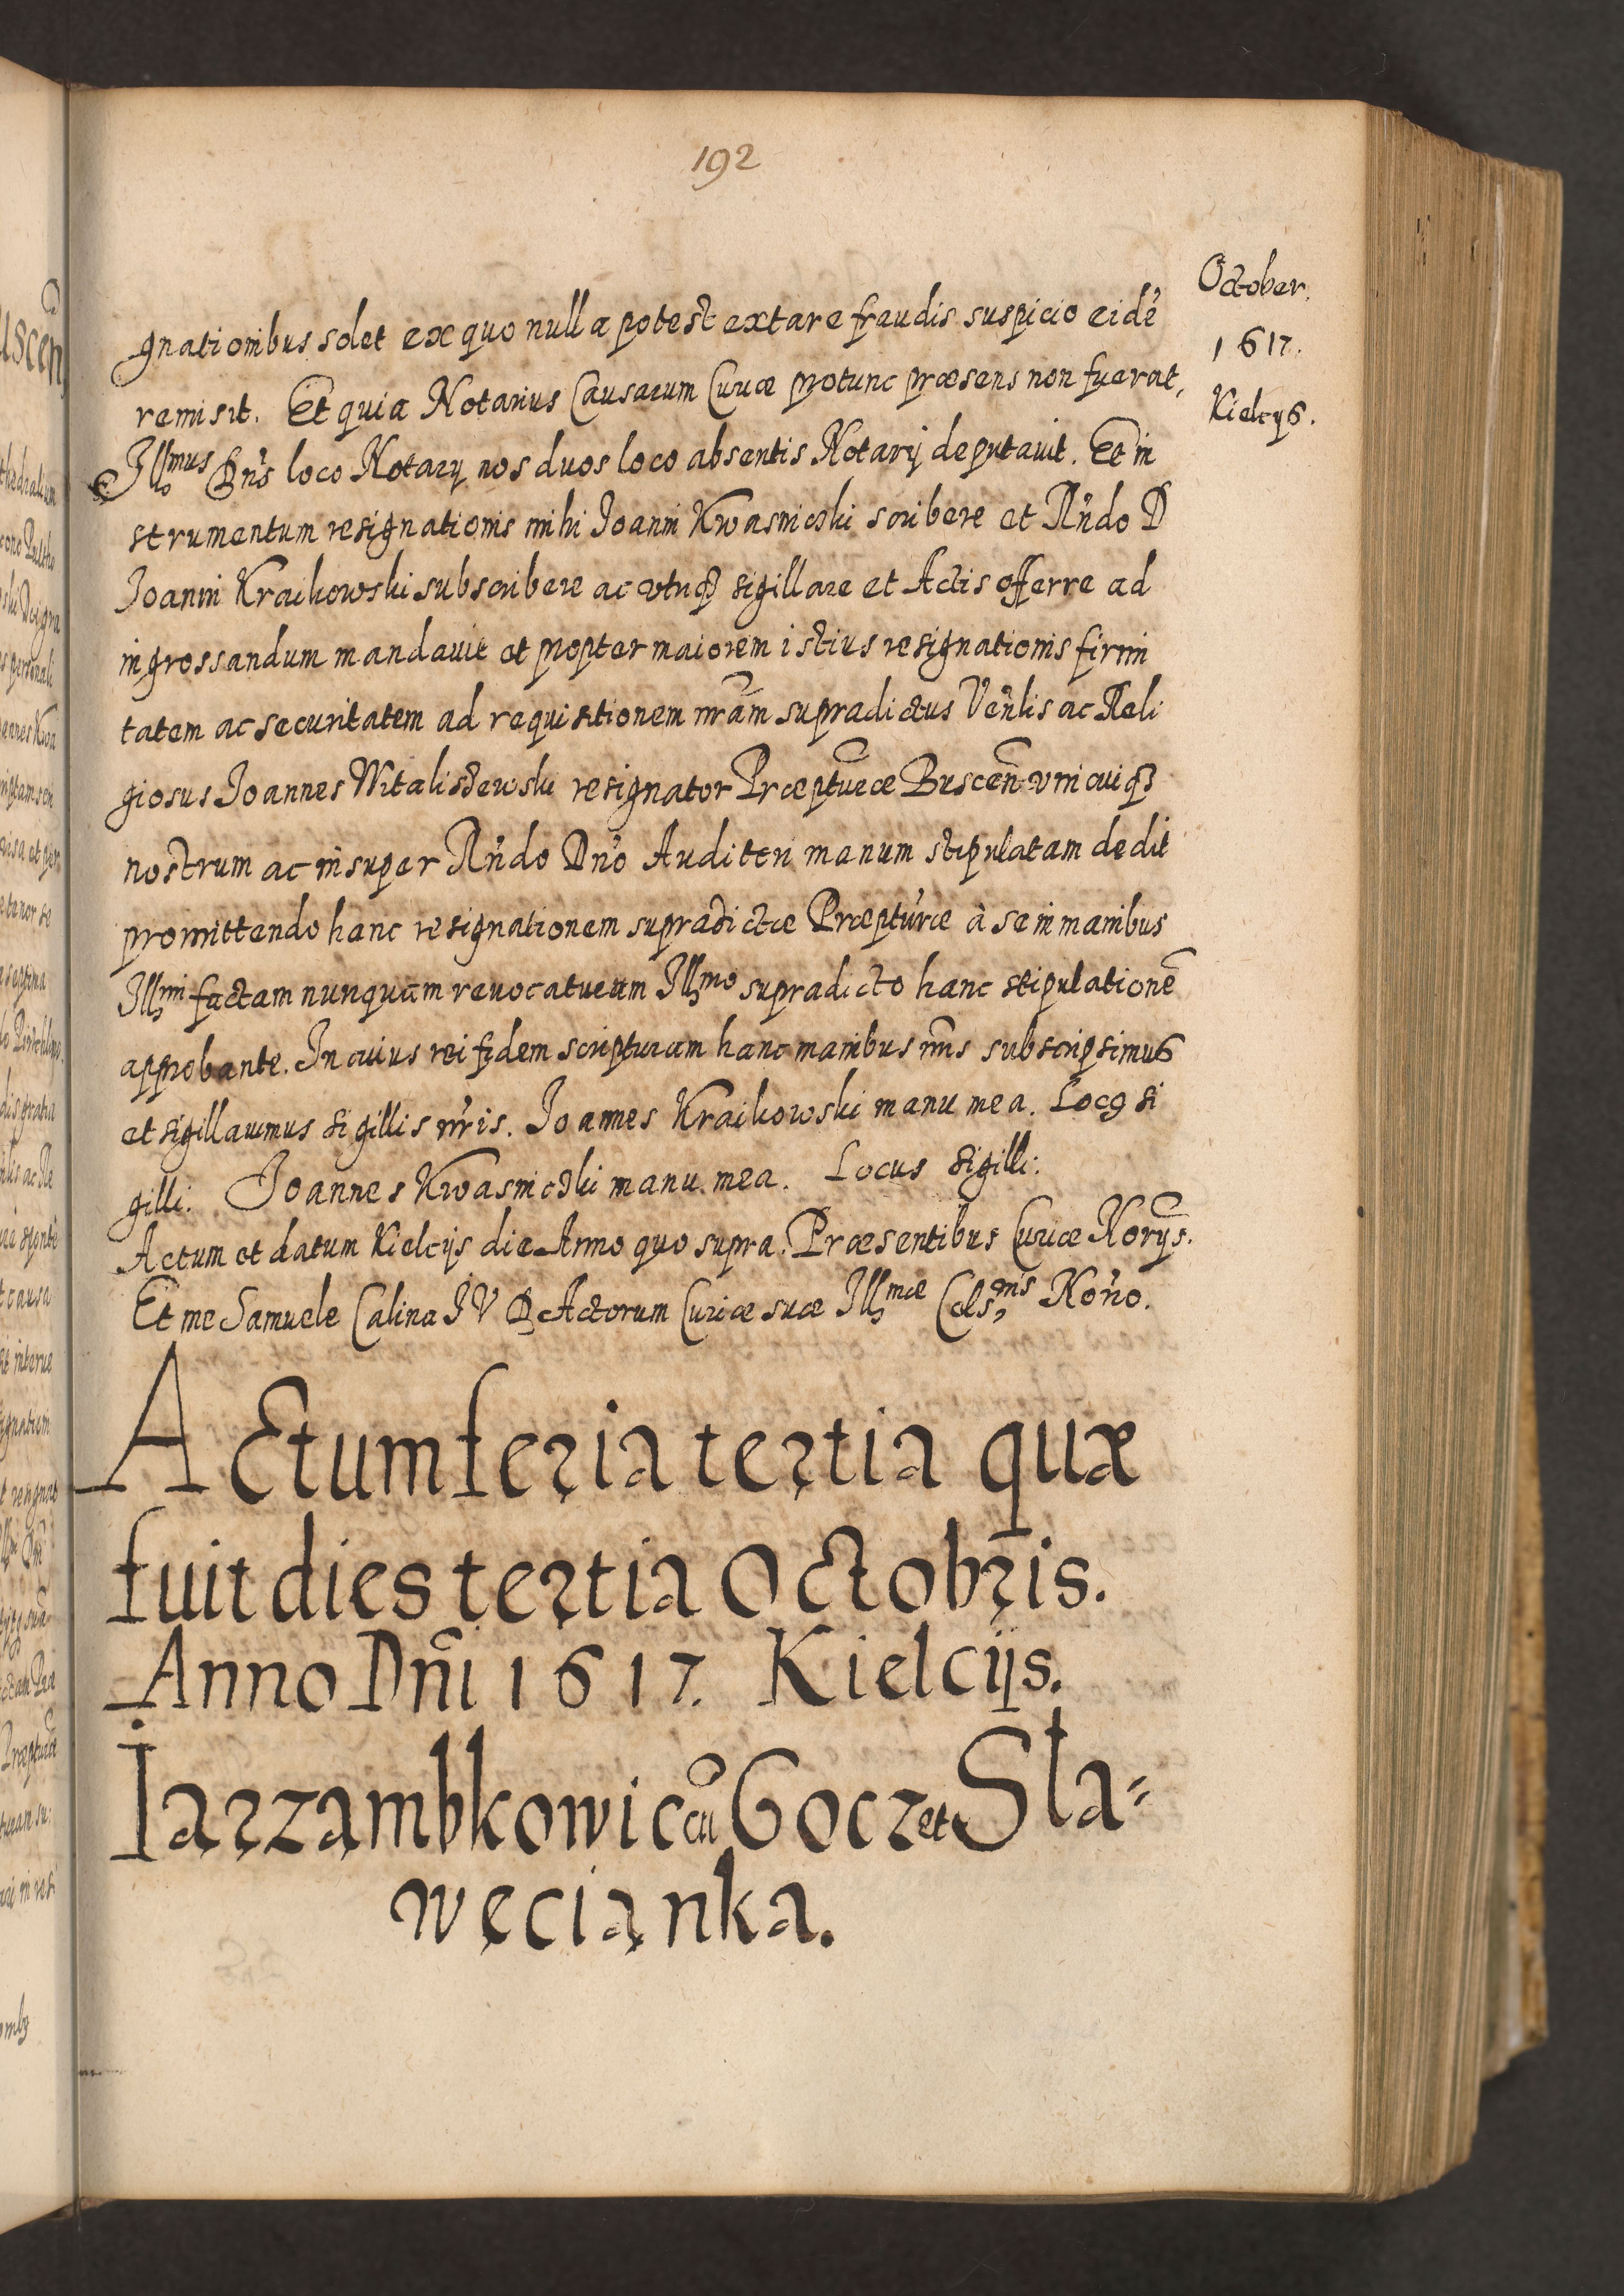 192
October.
1617.
Kielcijs.
gnationibus solet ex quo nulla potest extare fraudis suspicio eidē
remisit. Et quia Notarius Causarum Curiæ protunc præsens non fuerat,
Illmus Dn̄s loco Notarij nos duos loco absentis Notarij deputauit. Et in
strumentum resignationis mihi Joanni Kwasnicʒki scribere et Rn̄do D
Joanni Kraikowski subscribere ac vtrūqʒ sigillare et Actis offerre ad
ingrossandum mandauit et propter maiorem istius resignationis firmi
tatem ac securitatem ad requisitionem nr̄am supradictus Ven̄lis ac Reli
giosus Joannes Witaliszewski resignator Præpturæ Buscen̄ vnicuiqʒ
nostrum ac insuper Rn̄do Dn̄o Auditori manum stipulatam dedit
promittendo hanc resignationem supradictæ Præpturæ à se in manibus
Illmi factam nunquam reuocaturum Illmo supradicto hanc stipulationē
approbante. In cuius rei fidem scripturam hanc manibus nr̄is subscripsimus
et sigillauimus sigillis nr̄is. Joannes Kraikowski manu mea. Locꝯ si
gilli. Joannes Kwasnicʒki manu mea. Locus sigilli.
Actum et datum Kielcijs die Anno quo supra. Præsentibus Curiæ Nor̄ijs.
Et me Samuele Calina J V D Actorum Curiæ suæ Illmæ Cels:nis Nor̄io.
Actum feria tertia quæ
fuit dies tertia Octobris.
Anno Dn̄i 1617. Kielcijs.
Iarzambkowic cū Gocz et Sla=
węcianka.